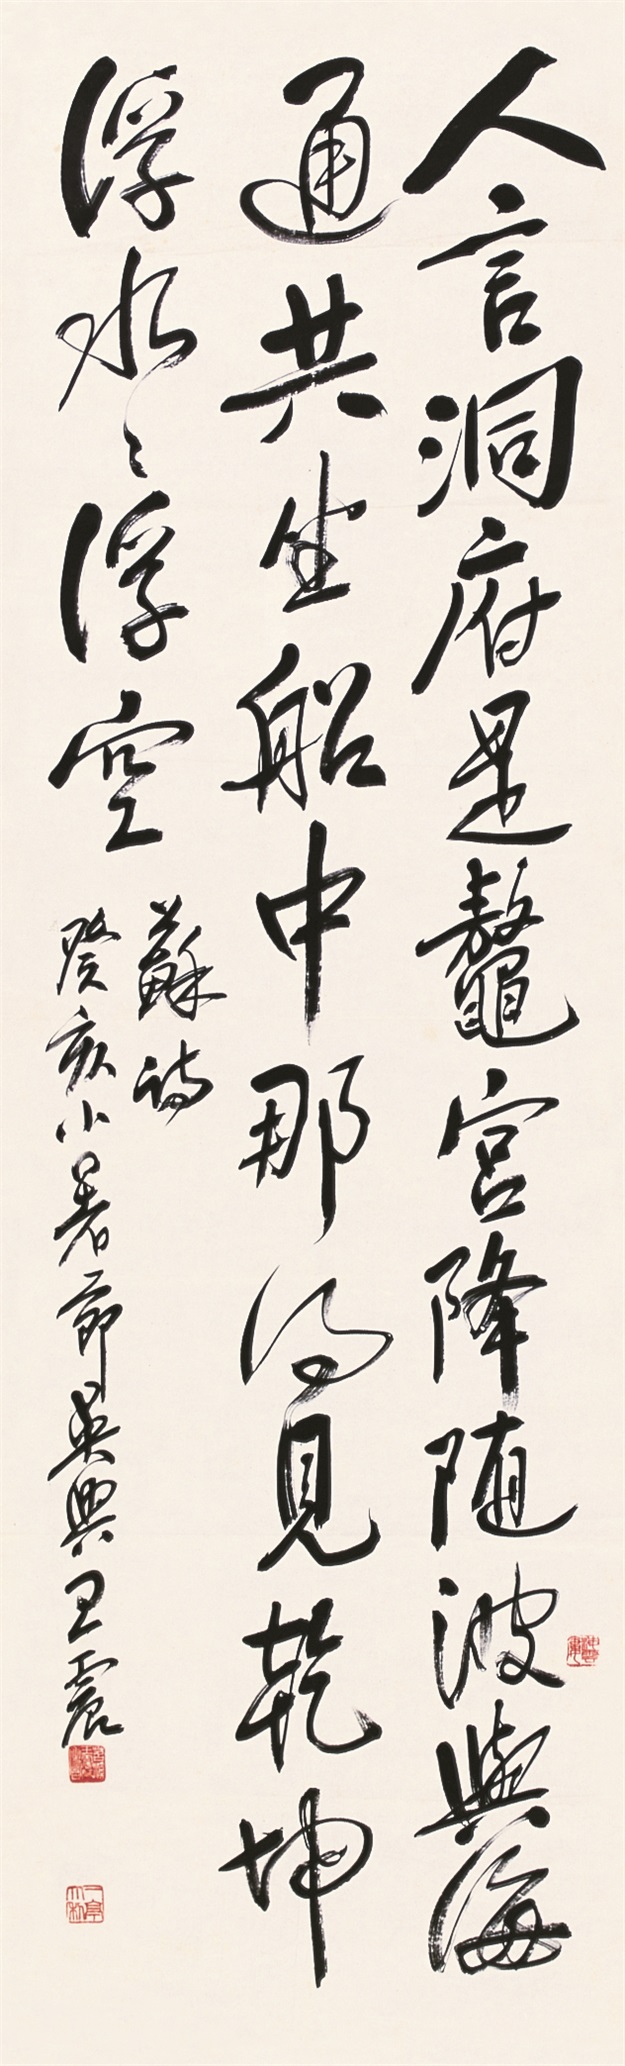 人言洞府是鼇宮降随波與海
通共坐船中那得見乾坤
浮水〻浮空
蘇詩
癸亥小暑節吳興王震